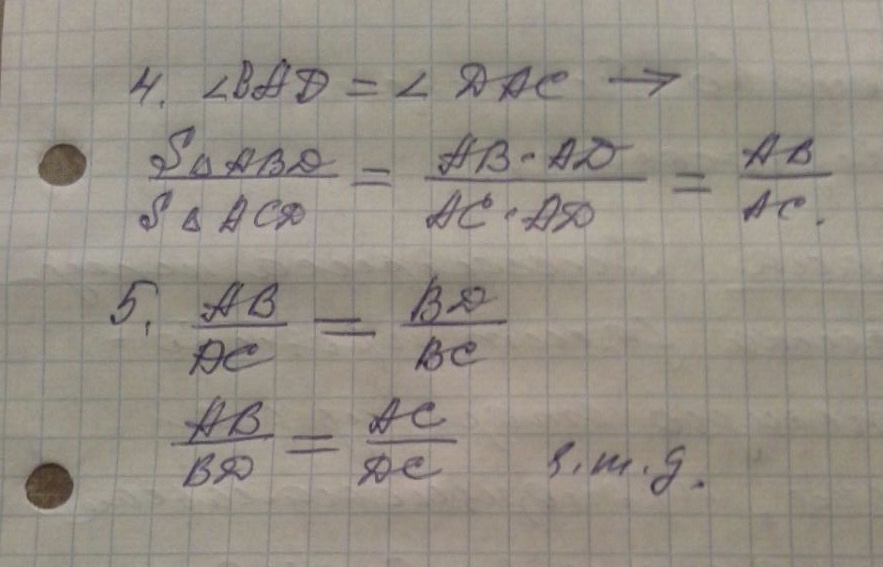 4. ∠BAD = ∠ DAC →
S△ABD / S△ACD = AB·AD / AC·AD = AB / AC.
5. AB / DC = BD / BC
AB / BD = AC / DC ч.т.д.